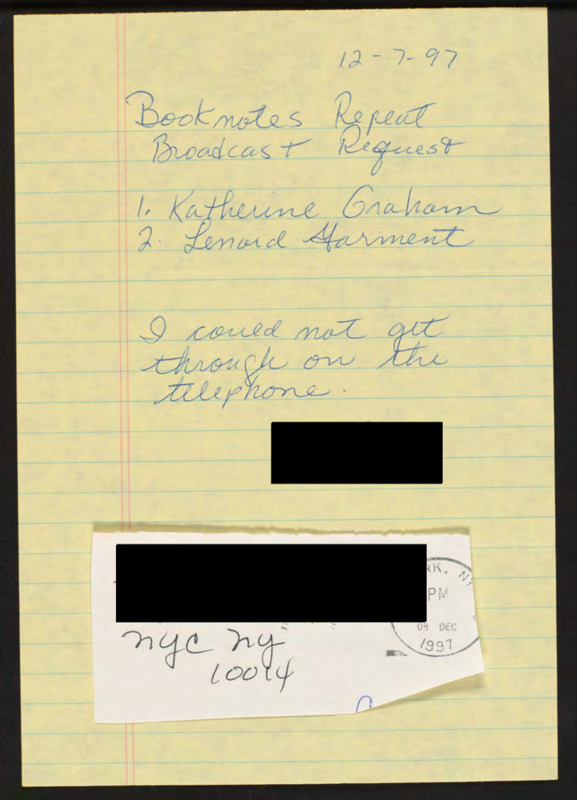 12-7-97
Booknotes Repeat
Broadcast Request
1. Katherine Graham
2. Lenard Garment
I could not get
through on the
telephone.
RK, NY
PM
08 DEC
1997
NYC NY
10014